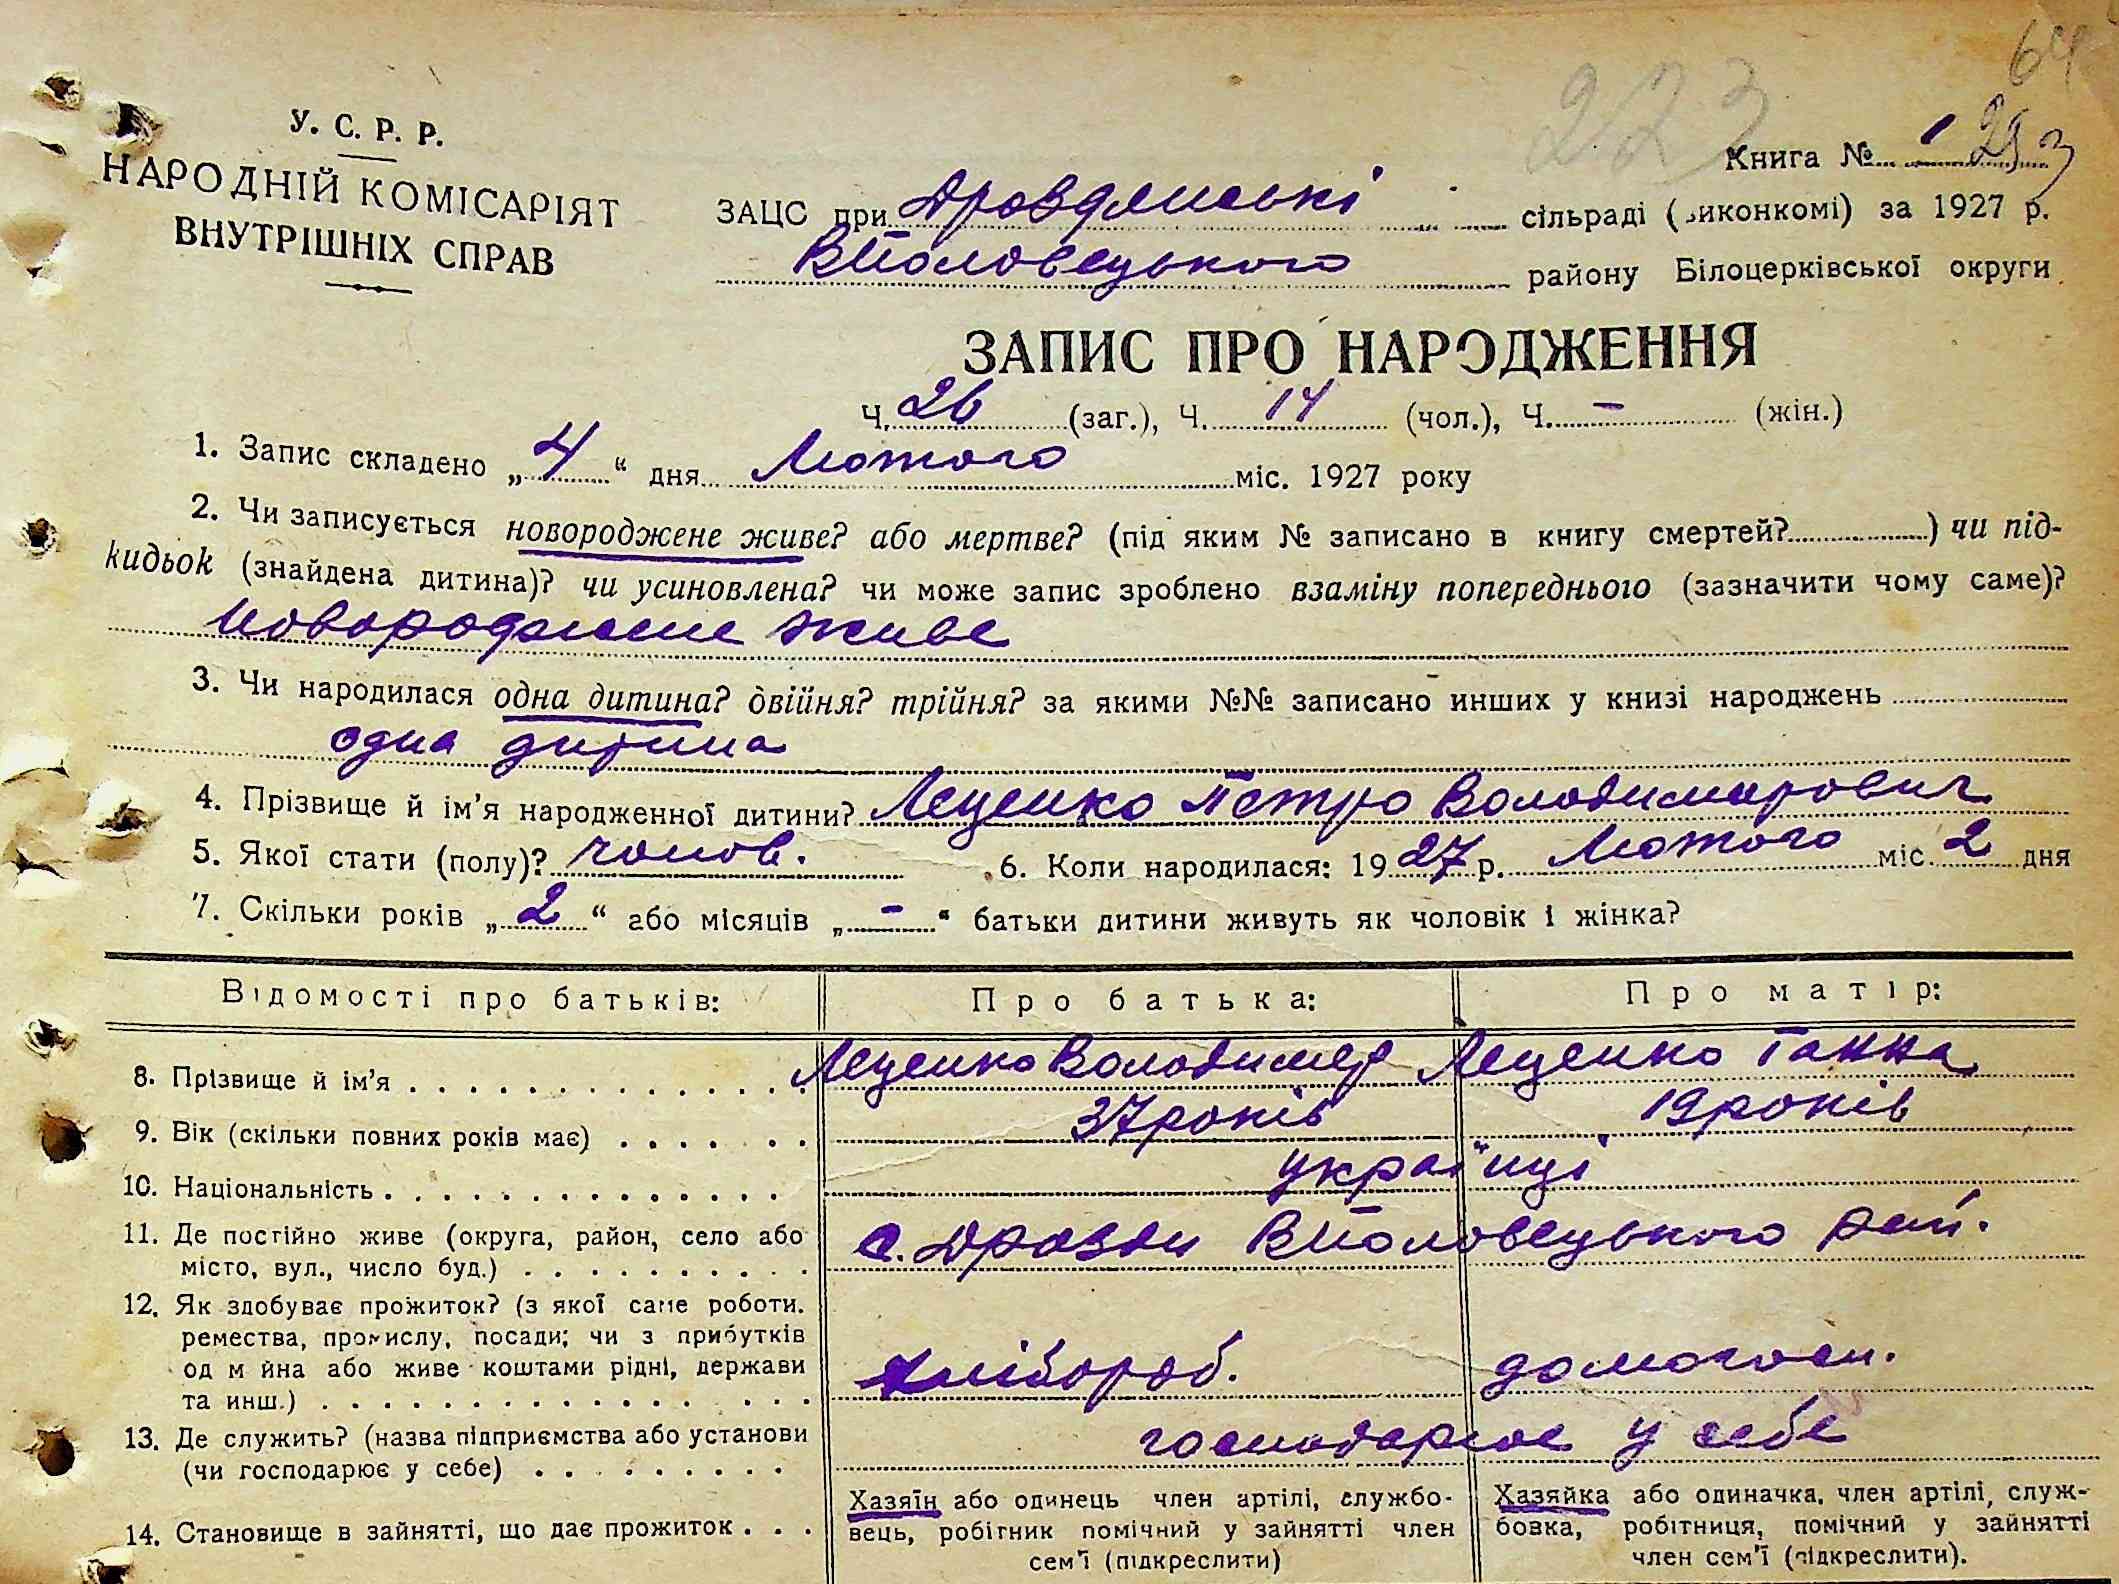 64
223
У. С. Р. Р.
НАРОДНІЙ КОМІСАРІЯТ
ВНУТРІШНІХ СПРАВ
Книга № 1
ЗАЦС при Дроздянські сільраді (виконкомі) за 1927 р.
ВПоловецького району Білоцерківської округи
ЗАПИС ПРО НАРОДЖЕННЯ
Ч. 26 (заг.), Ч. 14 (чол.), Ч. – (жін.)
1. Запис складено „4“ дня Лютого міс. 1927 року
2. Чи записується новороджене живе? або мертве? (під яким № записано в книгу смертей?) чи під-
кидьок (знайдена дитина)? чи усиновлена? чи може запис зроблено взаміну попереднього (зазначити чому саме)?
новороджене живе
3. Чи народилася одна дитина? двійня? трійня? за якими №№ записано инших у книзі народжень
одна дитина
4. Прізвище й ім’я народженної дитини? Леценко Петро Володимирович
5. Якої стати (полу)? чолов. 6. Коли народилася: 1927 р. Лютого міс. 2 дня
7. Скільки років „2“ або місяців „–“ батьки дитини живуть як чоловік і жінка?
Відомості про батьків: Про батька: Про матір:
8. Прізвище й ім’я Леценко Володимер Леценко Ганна
9. Вік (скільки повних років має) 37 років 19 років
10. Національність українці
11. Де постійно живе (округа, район, село або
місто, вул., число буд.) с. Дрозди ВПоловецького рай.
12. Як здобуває прожиток? (з якої саме роботи,
ремества, промислу, посади; чи з прибутків
од майна або живе коштами рідні, держави
та инш.) хлібороб. домогосп.
13. Де служить? (назва підприємства або установи
(чи господарює у себе) господарює у себе
14. Становище в зайнятті, що дає прожиток
Хазяїн або одинець член артілі, службо-
вець, робітник помічний у зайнятті член
сем’ї (підкреслити)
Хазяйка або одиначка, член артілі, служ-
бовка, робітниця, помічний у зайнятті
член сем’ї (підкреслити).